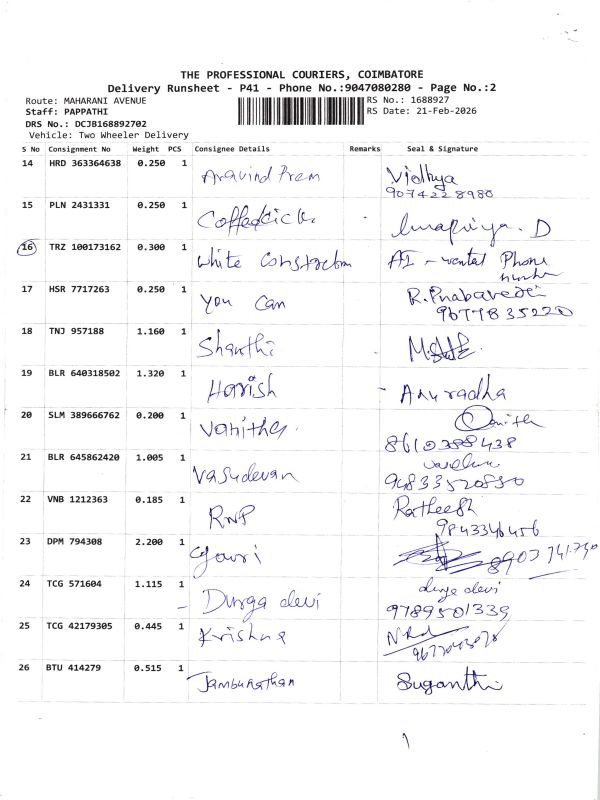 THE PROFESSIONAL COURIERS, COIMBATORE
Delivery Runsheet - P41 - Phone No.:9047080280 - Page No.:2
Route: MAHARANI AVENUE
Staff: PAPPATHI
DRS No.: DCJB168892702
Vehicle: Two Wheeler Delivery
RS No.: 1688927
RS Date: 21-Feb-2026
S No Consignment No Weight PCS Consignee Details Remarks Seal & Signature
14 HRD 363364638 0.250 1 Aravind Prem Vidhya
9074228980
15 PLN 2431331 0.250 1 D
16 TRZ 100173162 0.300 1 White Phone
number
17 HSR 7717263 0.250 1 You Can R.
9677835220
18 TNJ 957188 1.160 1 Shanthi
19 BLR 640318502 1.320 1 Harish - Anuradha
20 SLM 389666762 0.200 1 Vanitha
8610388438
21 BLR 645862420 1.005 1 Vasudevan
9483352850
22 VNB 1212363 0.185 1 RNP Ratheesh
9843346456
23 DPM 794308 2.200 1 Gowri
24 TCG 571604 1.115 1 - Durga devi durga devi
9789501339
25 TCG 42179305 0.445 1 Krishna
26 BTU 414279 0.515 1 Jambunathan Suganthi